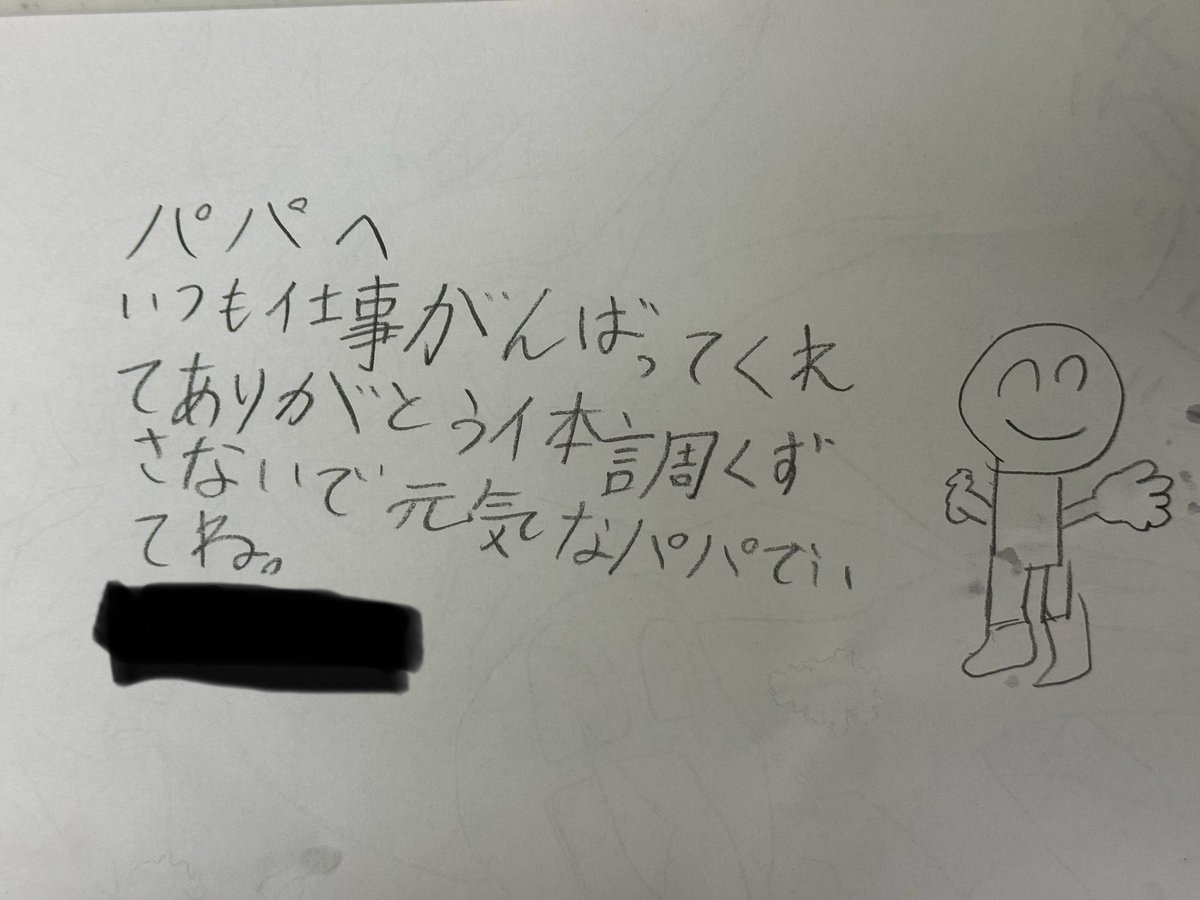 パパへ
いつも仕事がんばってくれ
てありがとう体調くず
さないで元気なパパでい
てね。